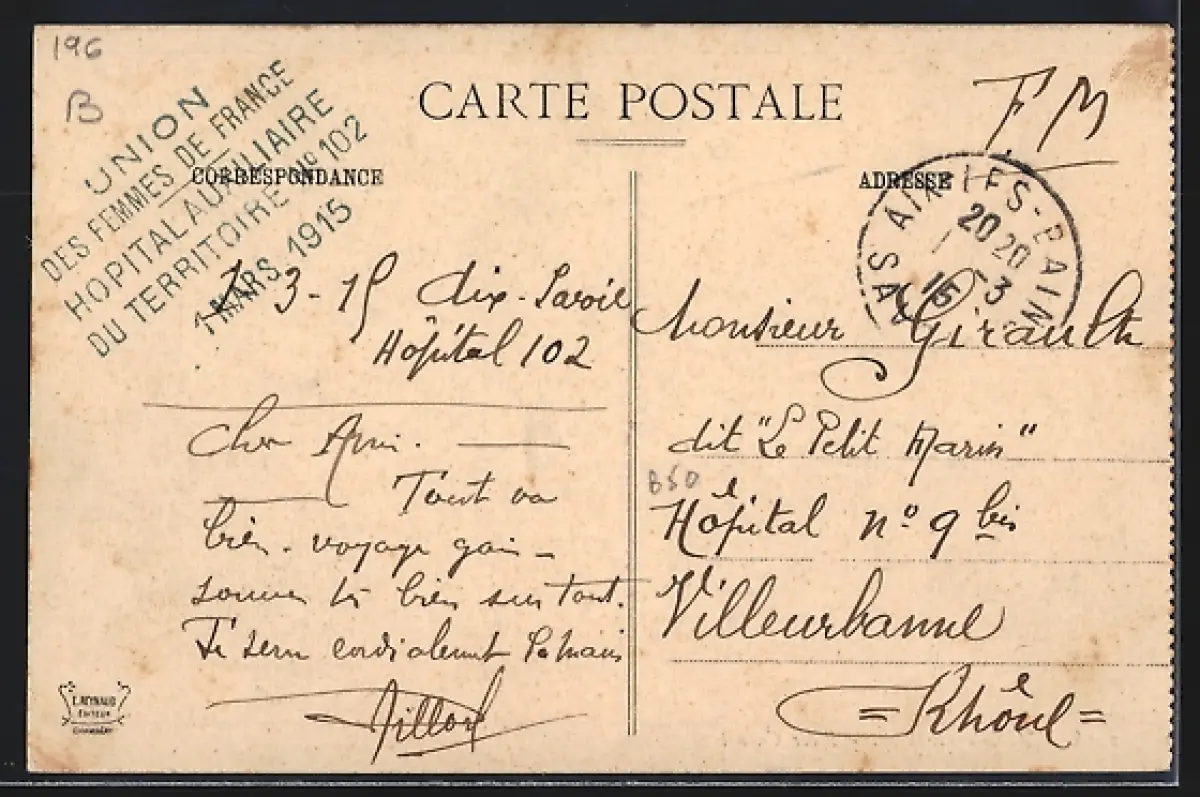 196
B
UNION
DES FEMMES DE FRANCE
HOPITAL AUXILIAIRE
DU TERRITOIRE N° 102
1 MARS 1915
CARTE POSTALE
F M
CORRESPONDANCE
ADRESSE
AIX-LES-BAINS
20 20
1 - 3
15
3-15 Aix-Savoie
Hôpital 102
Cher Ami.
Tout va
bien. voyage
bien surtout.
Te serre cordialement la main
Monsieur Girault
dit "Le Petit Marin"
B50
Hôpital n° 9 bis
Villeurbanne
= Rhône =
L. REYNAUD
EDITEUR
CHAMBÉRY